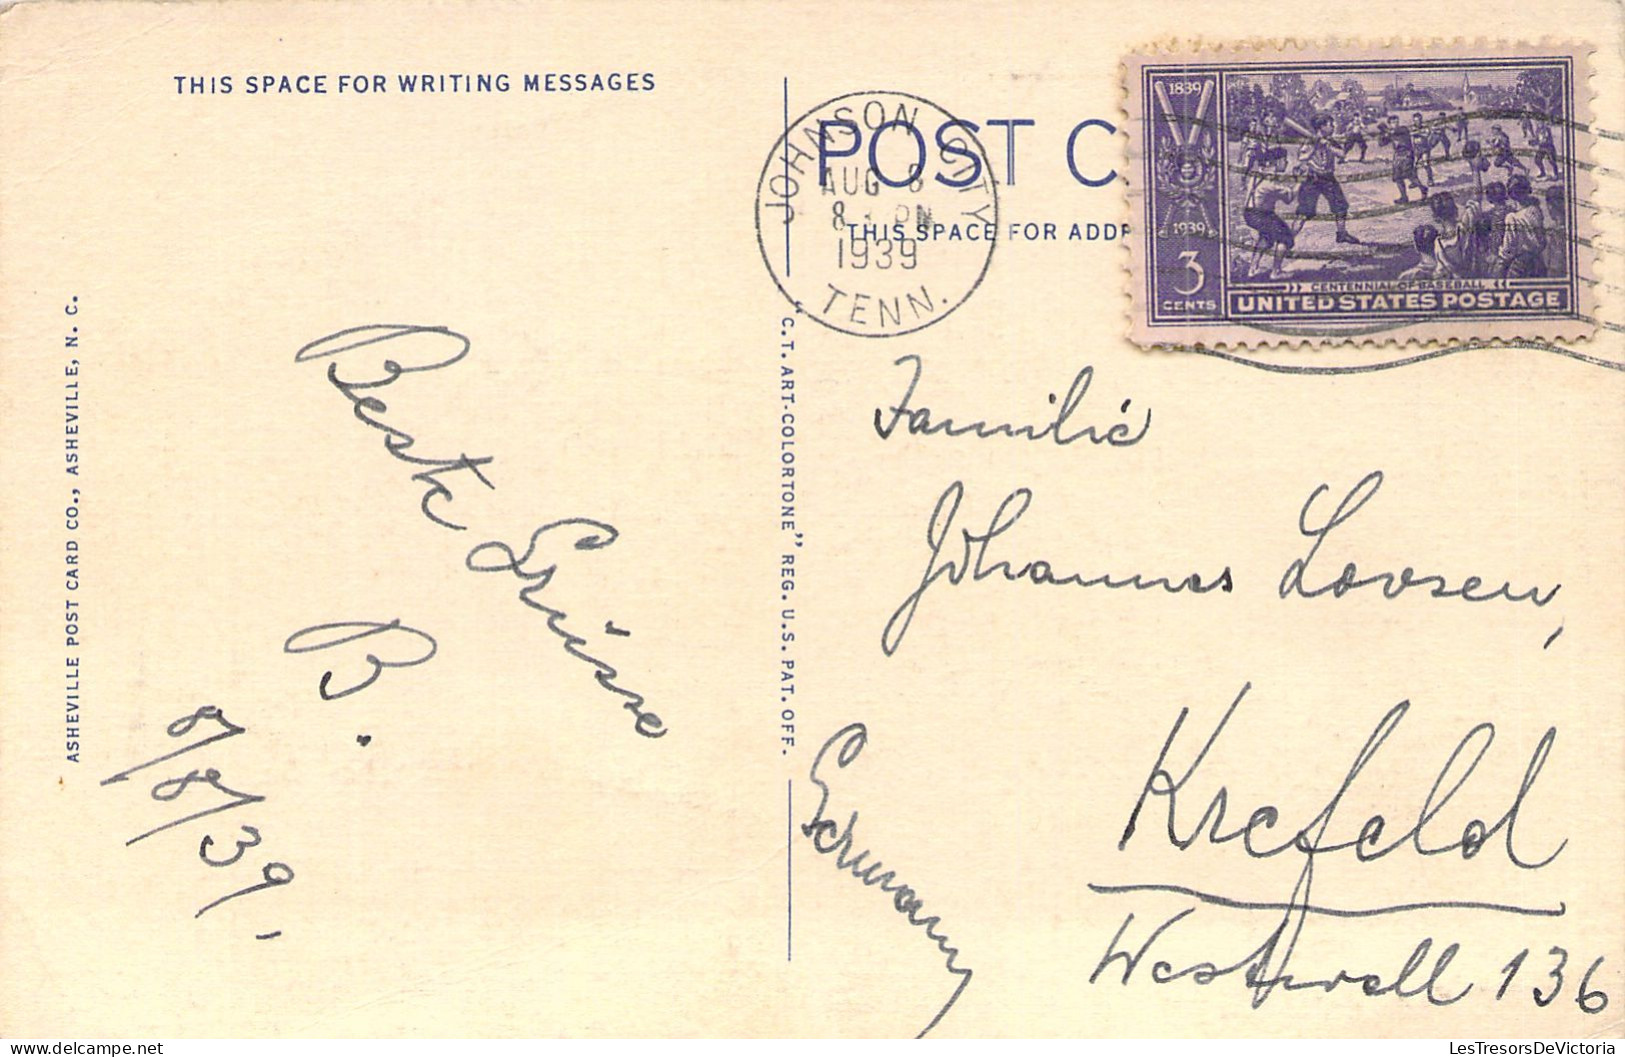 THIS SPACE FOR WRITING MESSAGES
POST C
THIS SPACE FOR ADDR
JOHNSON CITY
AUG 8
1939
TENN.
1839
1939
3
CENTS
CENTENNIAL OF BASEBALL
UNITED STATES POSTAGE
ASHEVILLE POST CARD CO., ASHEVILLE, N. C.
"C.T. ART-COLORTONE" REG. U.S. PAT. OFF.
Beste Grüsse
B.
8/8/39.
Familie
Johannes Loosen,
Krefeld
Westwall 136
Germany
LesTresorsDeVictoria